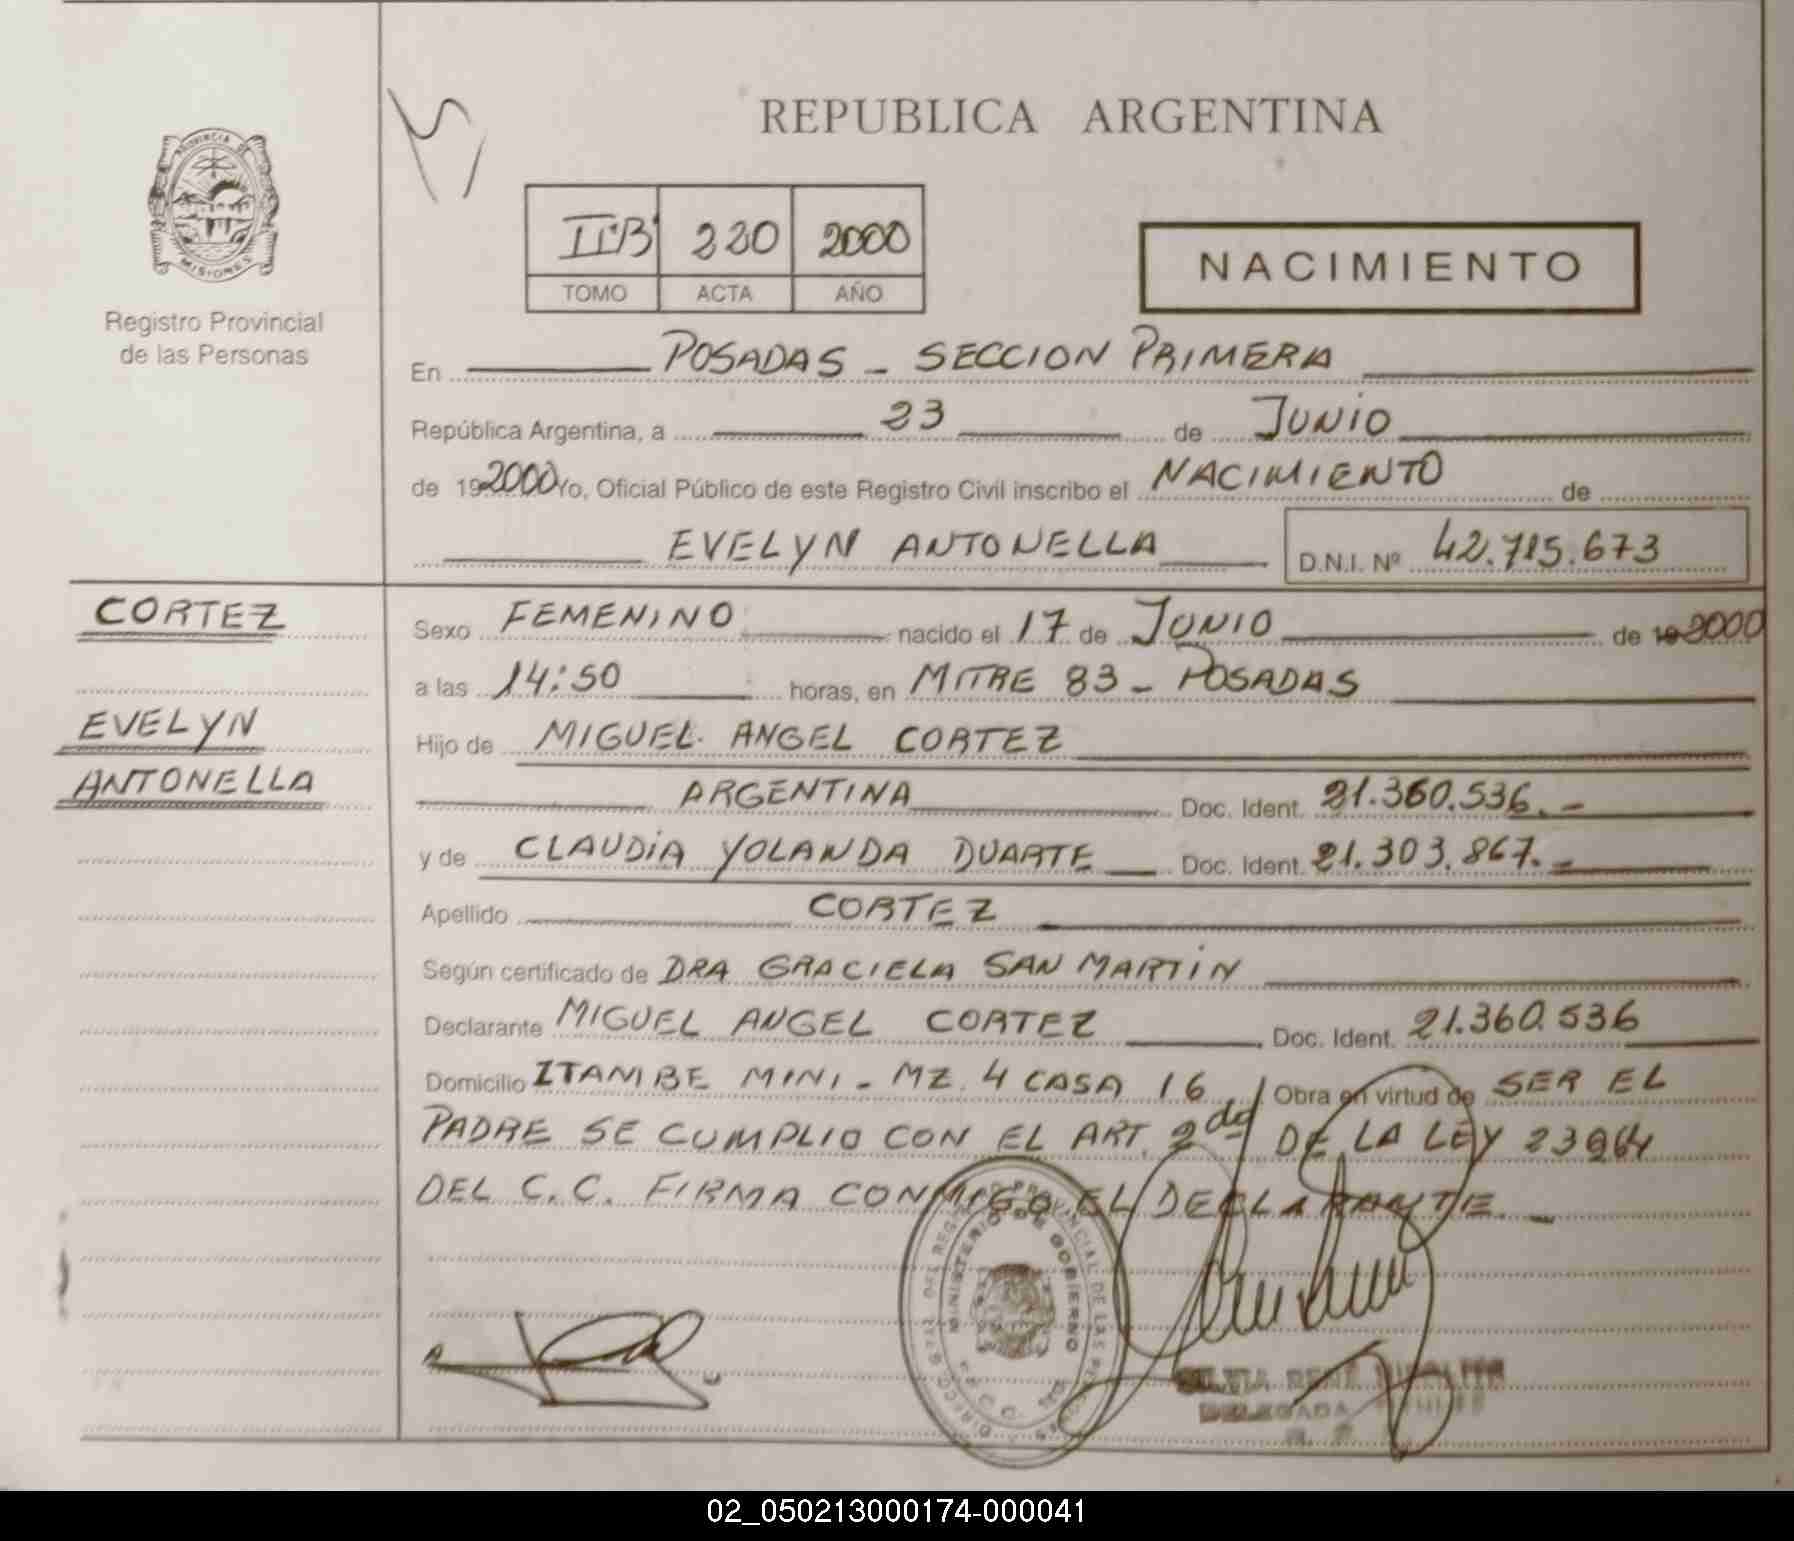 REPUBLICA ARGENTINA
PROVINCIA DE
MISIONES
Registro Provincial
de las Personas
II"B" 220 2000
TOMO ACTA AÑO
NACIMIENTO
En POSADAS - SECCION PRIMERA
República Argentina, a 23 de JUNIO
de 192000 Yo, Oficial Público de este Registro Civil inscribo el NACIMIENTO de
EVELYN ANTONELLA D.N.I. Nº 42.715.673
CORTEZ
EVELYN
ANTONELLA
Sexo FEMENINO nacido el 17 de JUNIO de 192000
a las 14:50 horas, en MITRE 83 - POSADAS
Hijo de MIGUEL ANGEL CORTEZ
ARGENTINA Doc. Ident. 21.360.536.-
y de CLAUDIA YOLANDA DUARTE Doc. Ident. 21.303.867.-
Apellido CORTEZ
Según certificado de DRA GRACIELA SAN MARTIN
Declarante MIGUEL ANGEL CORTEZ Doc. Ident. 21.360.536
Domicilio ITAMBE MINI - MZ 4 CASA 16 Obra en virtud de SER EL
PADRE SE CUMPLIO CON EL ART. 2do DE LA LEY 23264
DEL C.C. FIRMA CONMIGO EL DECLARANTE.-
MINISTERIO DE GOBIERNO
RENE
DELEGADA
02_050213000174-000041